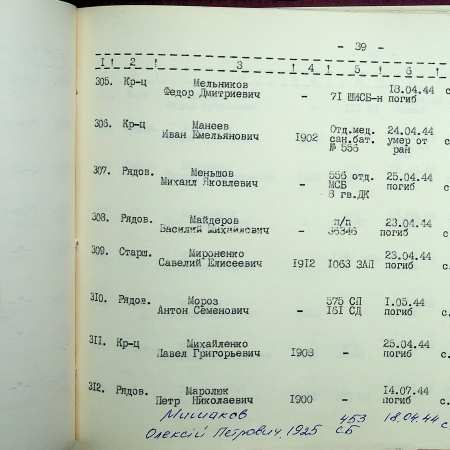 - 39 -
1 ! 2 ! 3 ! 4 ! 5 ! 6 !
305. Кр-ц Мельников 18.04.44 с
Федор Дмитриевич - 71 ШИСБ-н погиб
306. Кр-ц Манеев Отд.мед. 24.04.44
Иван Емельянович 1902 сан.бат. умер от с
№ 556 ран
307. Рядов. Меньшов 556 отд. 25.04.44
Михаил Яковлевич - МСБ погиб с
8 гв.ДК
308. Рядов. Майдеров п/п 23.04.44
Василий Михайлович - 36346 погиб с.
309. Старш. Мироненко 23.04.44
Савелий Елисеевич 1912 1063 ЗАП погиб с.
310. Рядов. Мороз 575 СП 1.05.44
Антон Семенович - 161 СД погиб с.
311. Кр-ц Михайленко 25.04.44
Павел Григорьевич 1908 - погиб с.
312. Рядов. Маролюк 14.07.44
Петр Николаевич 1900 - погиб с.
Мишаков 453 18.04.44 с
Олексій Петрович, 1925 СБ